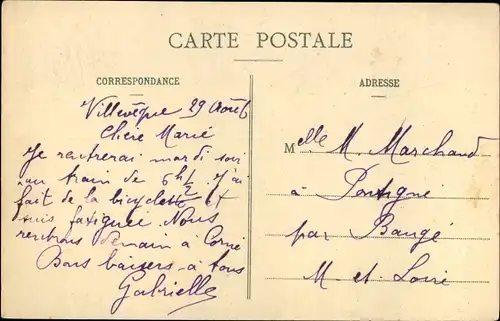 CARTE POSTALE
CORRESPONDANCE
Villevêque 29 Août
Chère Marie
Je rentrerai mardi soir
au train de 6h½ J'ai
fait de la bicyclette et
suis fatiguée Nous
rentrons demain à Corné
Bons baisers à tous
Gabrielle
ADRESSE
Melle M. Marchand
à Pontigné
par Baugé
M. et. Loire